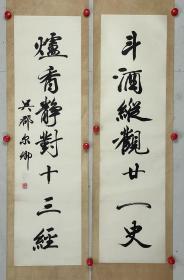 斗酒縱觀廿一史
爐香静對十三經
吴郡